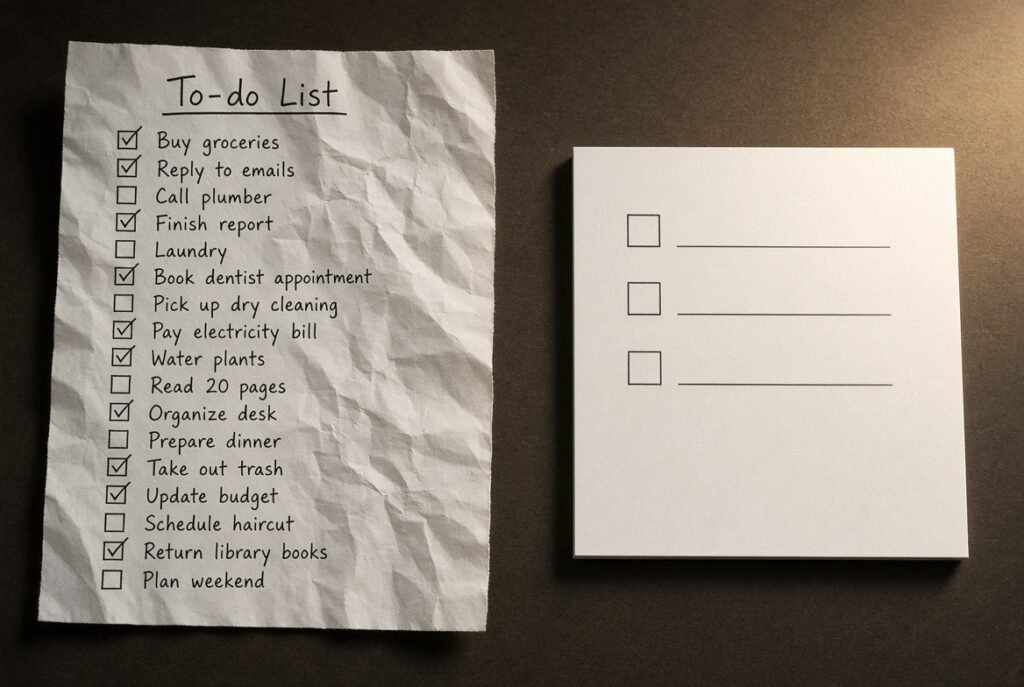 To-do List
Buy groceries
Reply to emails
Call plumber
Finish report
Laundry
Book dentist appointment
Pick up dry cleaning
Pay electricity bill
Water plants
Read 20 pages
Organize desk
Prepare dinner
Take out trash
Update budget
Schedule haircut
Return library books
Plan weekend